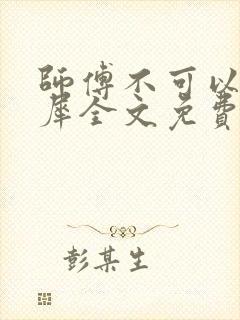 師傅不可以
犀全文免費
彭某生